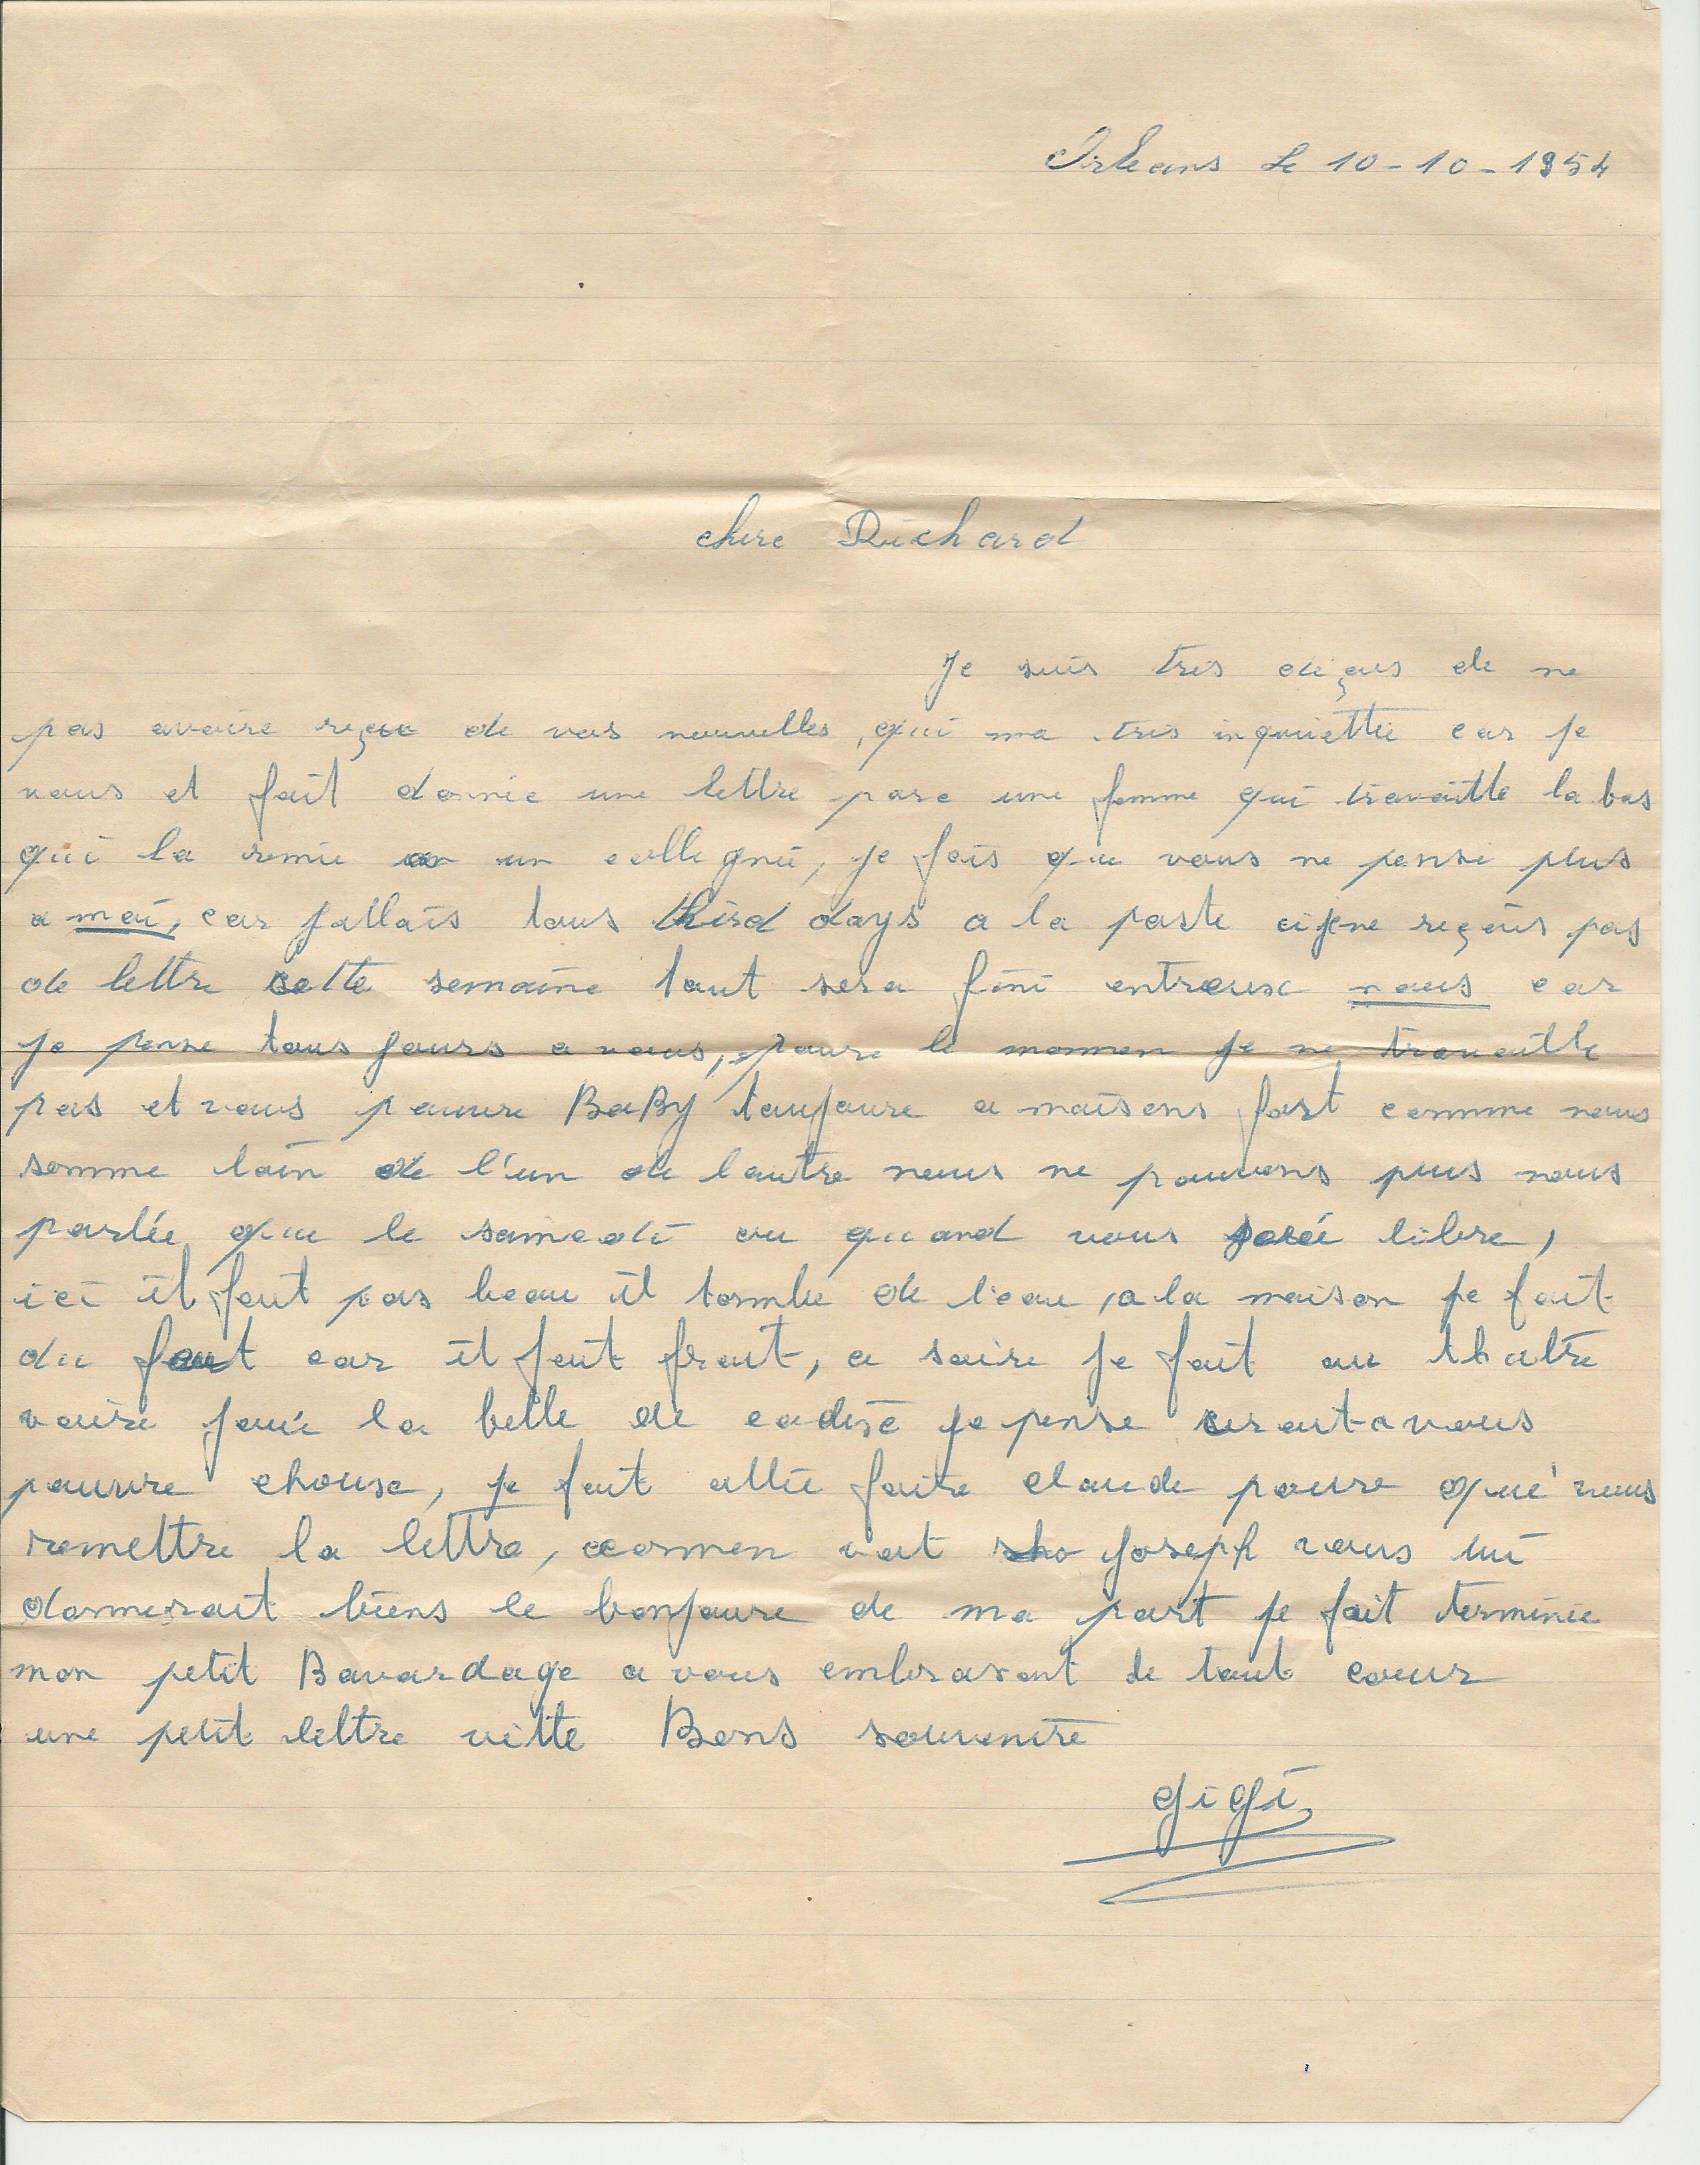 Orleans le 10-10-1954
chere Richard
Je suis tres déçus de ne
pas avoire reçue de vos nouvelles, qui ma tres inquiettée car je
vous et fait donnée une lettre pare une femme qui travaille la bas
qui la remie a un collegnie, je fois que vous ne pensé plus
a moi, car jallais tous third days a la poste ci je ne reçois pas
de lettre cette semaine tout sera fini entreux nous car
je pense tous jours a vous, poure le mommen je ne travaille
pas et vous pauvre BaBy toujoure a maisons fort comme nous
somme loin de l'un de lautre nous ne pouvons plus nous
parlée que le samedi ou quand vous libre,
ici il fait pas beau il tombe de l'eau, a la maison je fait
du car il fait frait, ce soire je fait au thatre
voire joué la belle de cadise je pense a vous
pauvre chouse, je fait allée faire claude poure qui vous
remettre la lettre, carmen vat joseph vous lui
donnerait biens le bonjoure de ma part je fait terminée
mon petit Bavardage a vous embrasant de tout coeur
une petit lettre vitte Bons souvenire
gigi